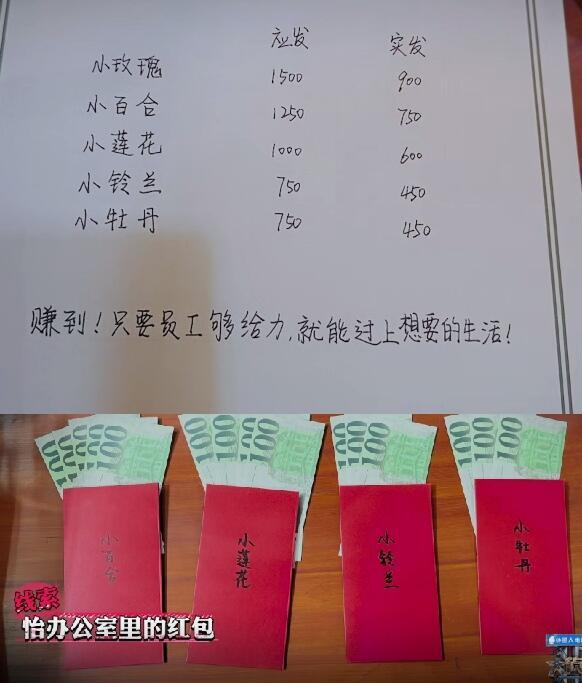 应发 实发
小玫瑰 1500 900
小百合 1250 750
小莲花 1000 600
小铃兰 750 450
小牡丹 750 450
赚到！只要员工够给力，就能过上想要的生活！
100 100 100 100
小百合 小莲花 小铃兰 小牡丹
线索
怡办公室里的红包